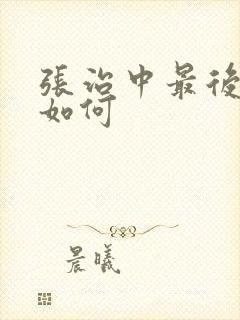 張治中最後
如何
晨曦